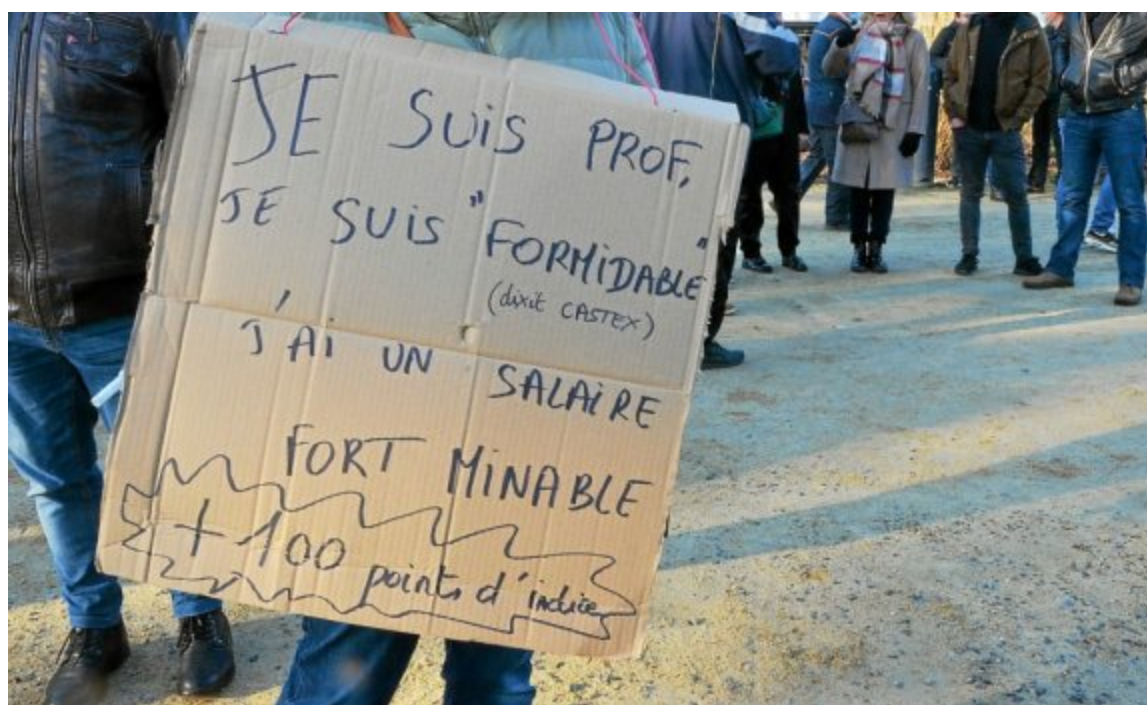 JE SUiS PROF,
JE SUiS "FORMIDABLE"
(dixit CASTEX)
J'Ai UN SALAiRE
FORT MiNABLE
+ 100 points d'indice